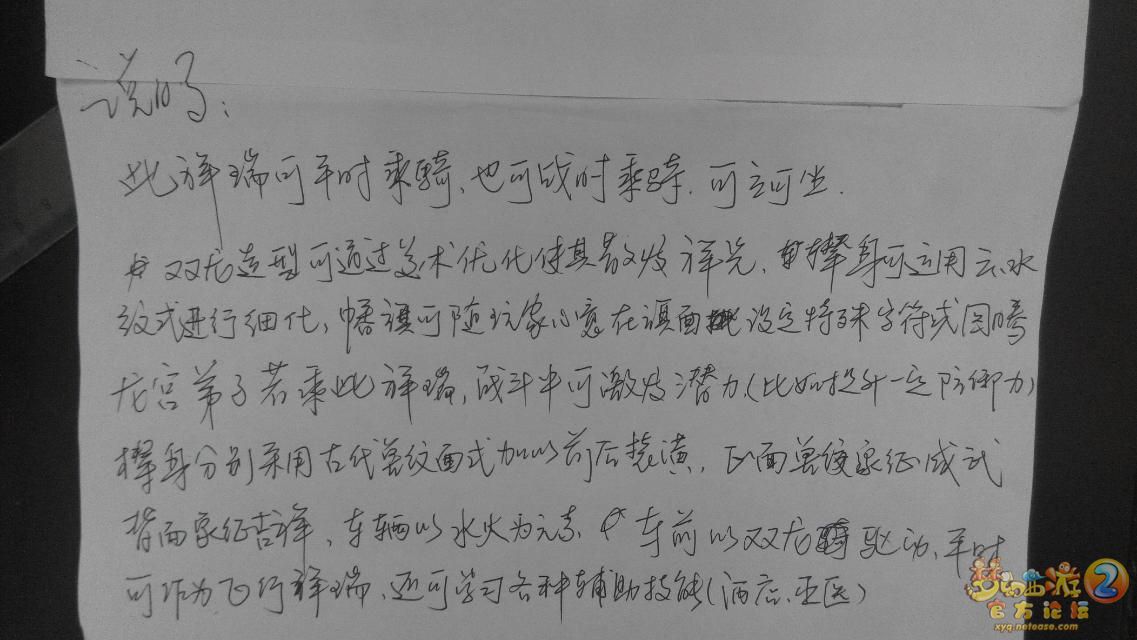 说明：
此祥瑞可平时乘骑、也可战时乘骑.可立可坐.
双龙造型可通过美术优化使其散发祥光、身可运用云、水
纹式进行细化，幡旗可随玩家心意在旗面设定特殊字符或图腾
龙宫弟子若乘此祥瑞，战斗中可激发潜力.(比如提升一定防御力)
身分别采用古代兽纹面式加以前后装潢，正面兽纹象征威武
背面象征吉祥、车辆以水火为元素 车前以双龙驱动、平时
可作为飞行祥瑞，还可学习各种辅助技能(酒店、巫医)
梦幻西游2
官方论坛
xyq.netease.com